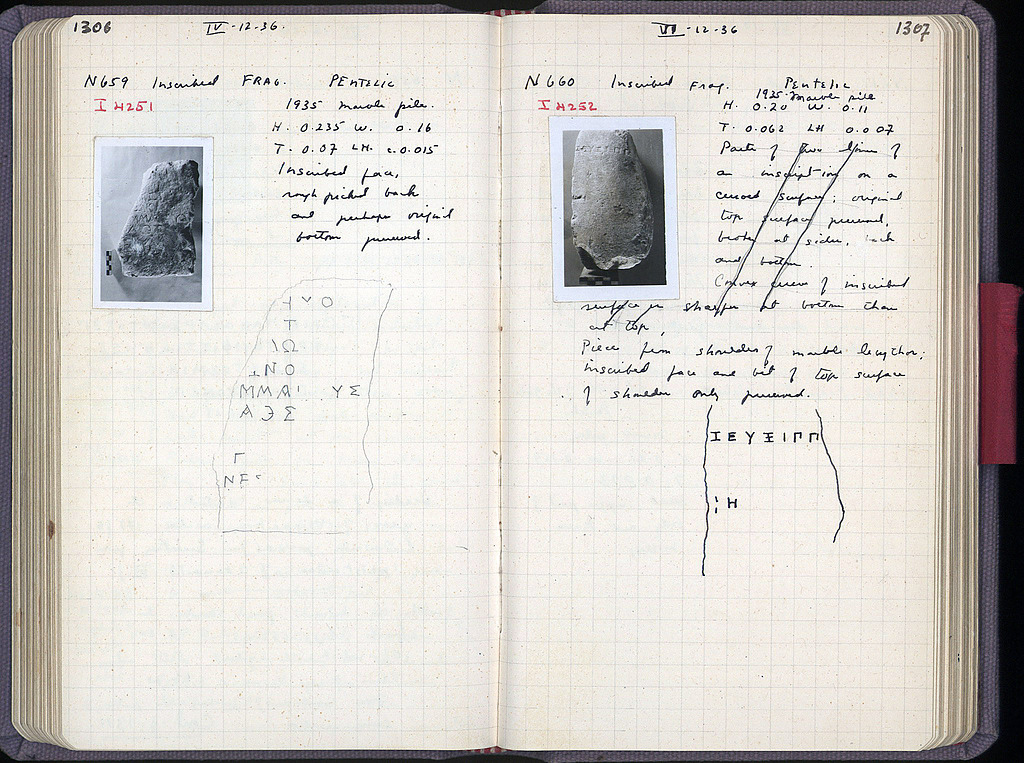 1306
IV-12-36.
N659 Inscribed FRAG. PENTELIC
I 4251
1935 marble pile.
H. 0.235 W. 0.16
T. 0.07 LH. c.0.015
Inscribed face,
rough picked back
and perhaps original
bottom preserved.
Υ Ο
Τ
ΙΩ
ΝΟ
ΜΜΑΙ ΥΣ
Α Э Σ
Γ
ΝΕ
VI-12-36
1307
N660 Inscribed Frag. Pentelic
I 4252
1935 Marble pile
H. 0.20 W. 0.11
T. 0.062 LH 0.007
Parts of two lines of
an inscription on a
curved surface; original
top surface preserved,
broken at sides, back
and bottom.
Convex curve of inscribed
surface is sharper at bottom than
at top.
Piece from shoulder of marble lekythos;
inscribed face and bit of top surface
of shoulder only preserved.
ΙΕΥΞΙΠΠ
Η